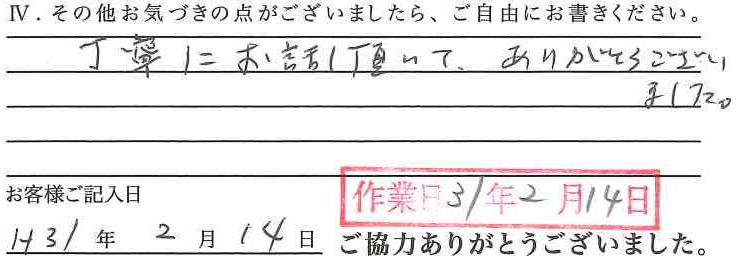 Ⅳ．その他お気づきの点がございましたら、ご自由にお書きください。
丁寧にお話し頂いて、ありがとうございい
ました。
お客様ご記入日
作業日31年2月14日
H31年2月14日
ご協力ありがとうございました。